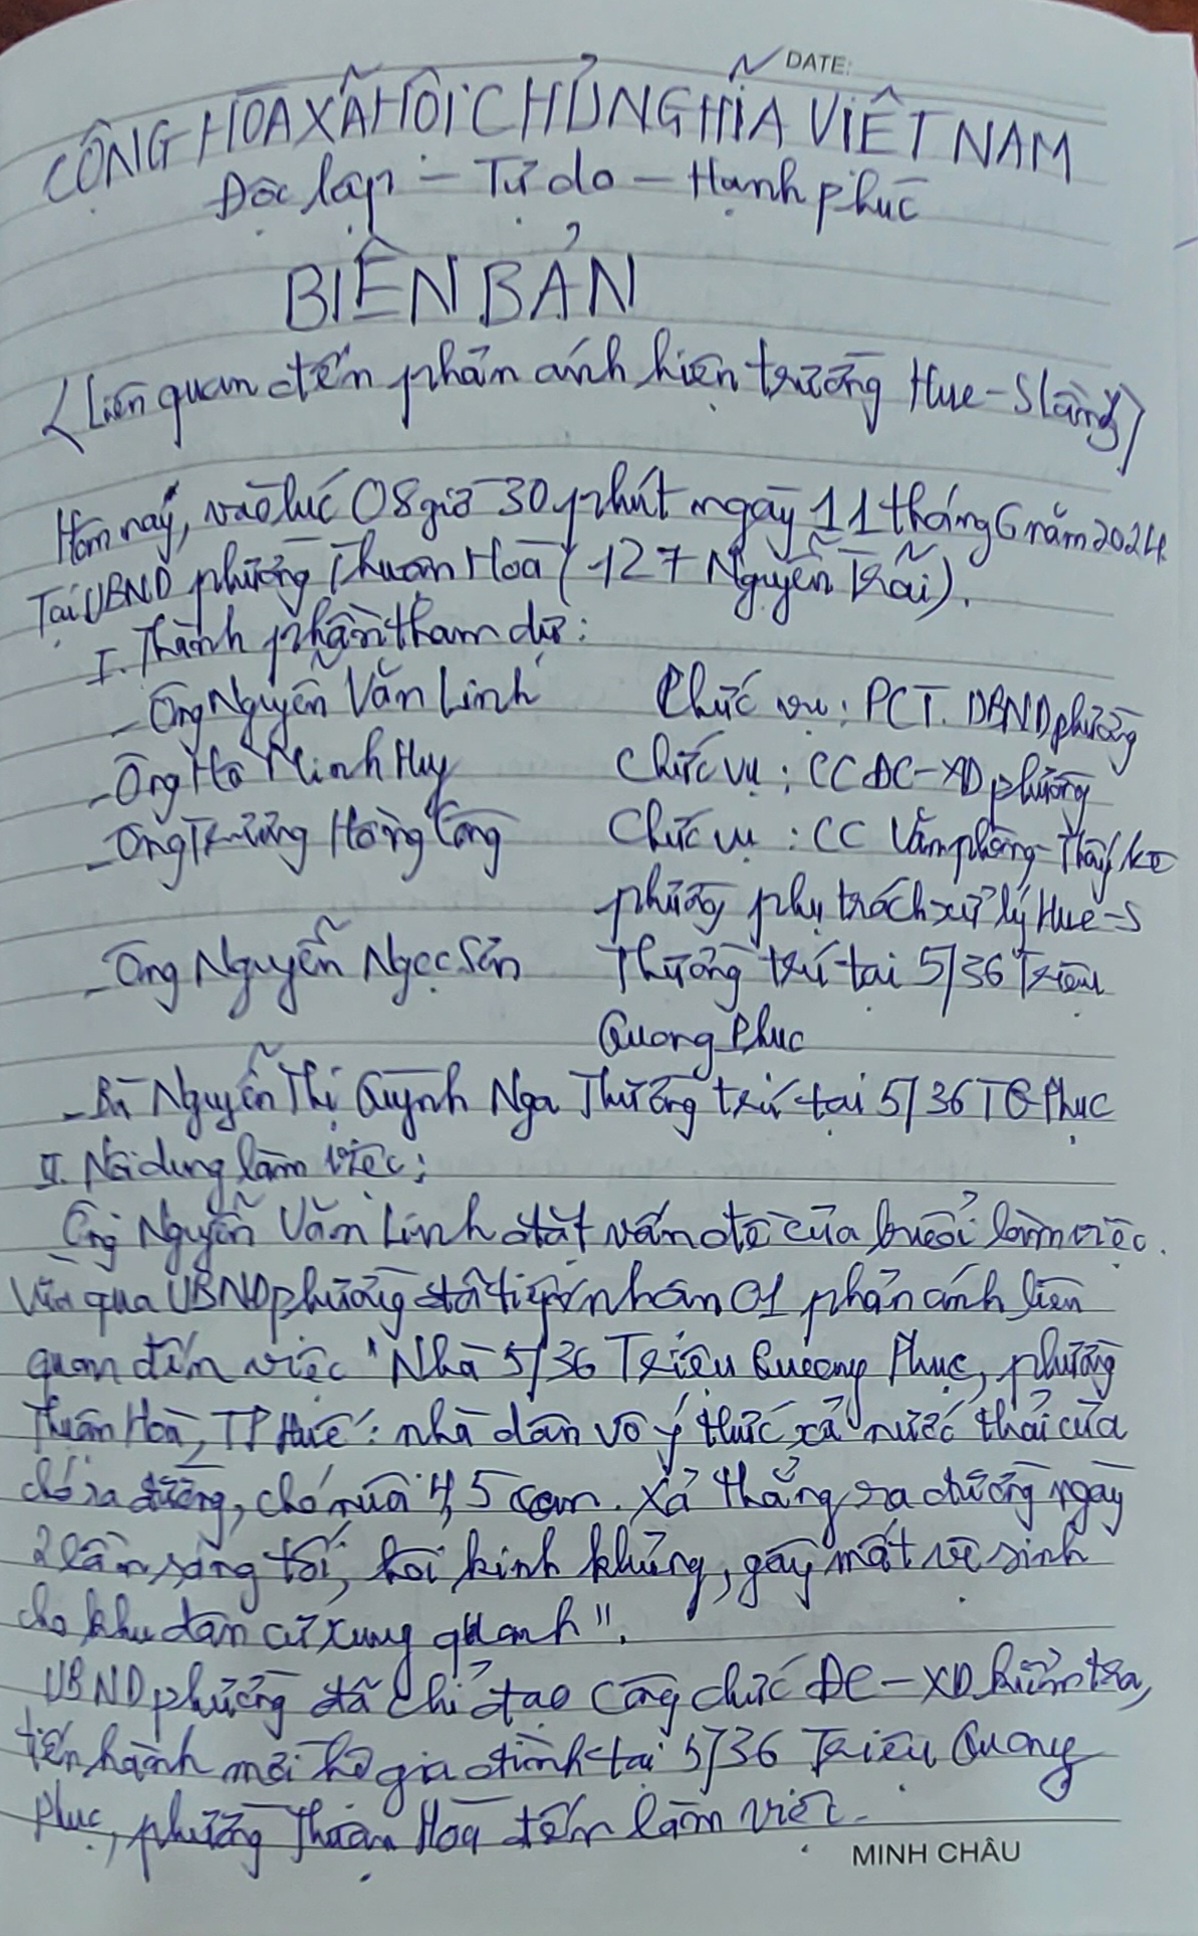 DATE:
CỘNG HÒA XÃ HỘI CHỦ NGHĨA VIỆT NAM
Độc lập - Tự do - Hạnh phúc
BIÊN BẢN
(Liên quan đến phản ánh hiện trường Hue-S
Hôm nay, vào lúc 08 giờ 30 phút ngày 11 tháng 6 năm 2024
Tại UBND phường Thuận Hòa (127 Nguyễn Trãi).
I. Thành phần tham dự:
- Ông Nguyễn Văn Linh Chức vụ: PCT. UBND phường
- Ông Hồ Minh Huy Chức vụ: CC ĐC-XD phường
- Ông Trương Hoàng Công Chức vụ: CC Văn phòng-Thống kê
phường phụ trách xử lý Hue-S
- Ông Nguyễn Ngọc Sản Thường trú tại 5/36 Triệu
Quang Phục
- Bà Nguyễn Thị Quỳnh Nga Thường trú tại 5/36 TQ Phục
II. Nội dung làm việc:
Ông Nguyễn Văn Linh đặt vấn đề của buổi làm việc.
Vừa qua UBND phường đã tiếp nhận 01 phản ánh liên
quan đến việc "Nhà 5/36 Triệu Quang Phục, phường
Thuận Hòa, TP Huế: nhà dân vô ý thức xả nước thải của
chó ra đường, chó nuôi 4, 5 con. Xả thẳng ra đường ngày
2 lần sáng tối, hôi kinh khủng, gây mất vệ sinh
cho khu dân cư xung quanh".
UBND phường đã chỉ đạo công chức ĐC-XD kiểm tra,
tiến hành mời hộ gia đình tại 5/36 Triệu Quang
Phục, phường Thuận Hòa đến làm việc.
MINH CHÂU